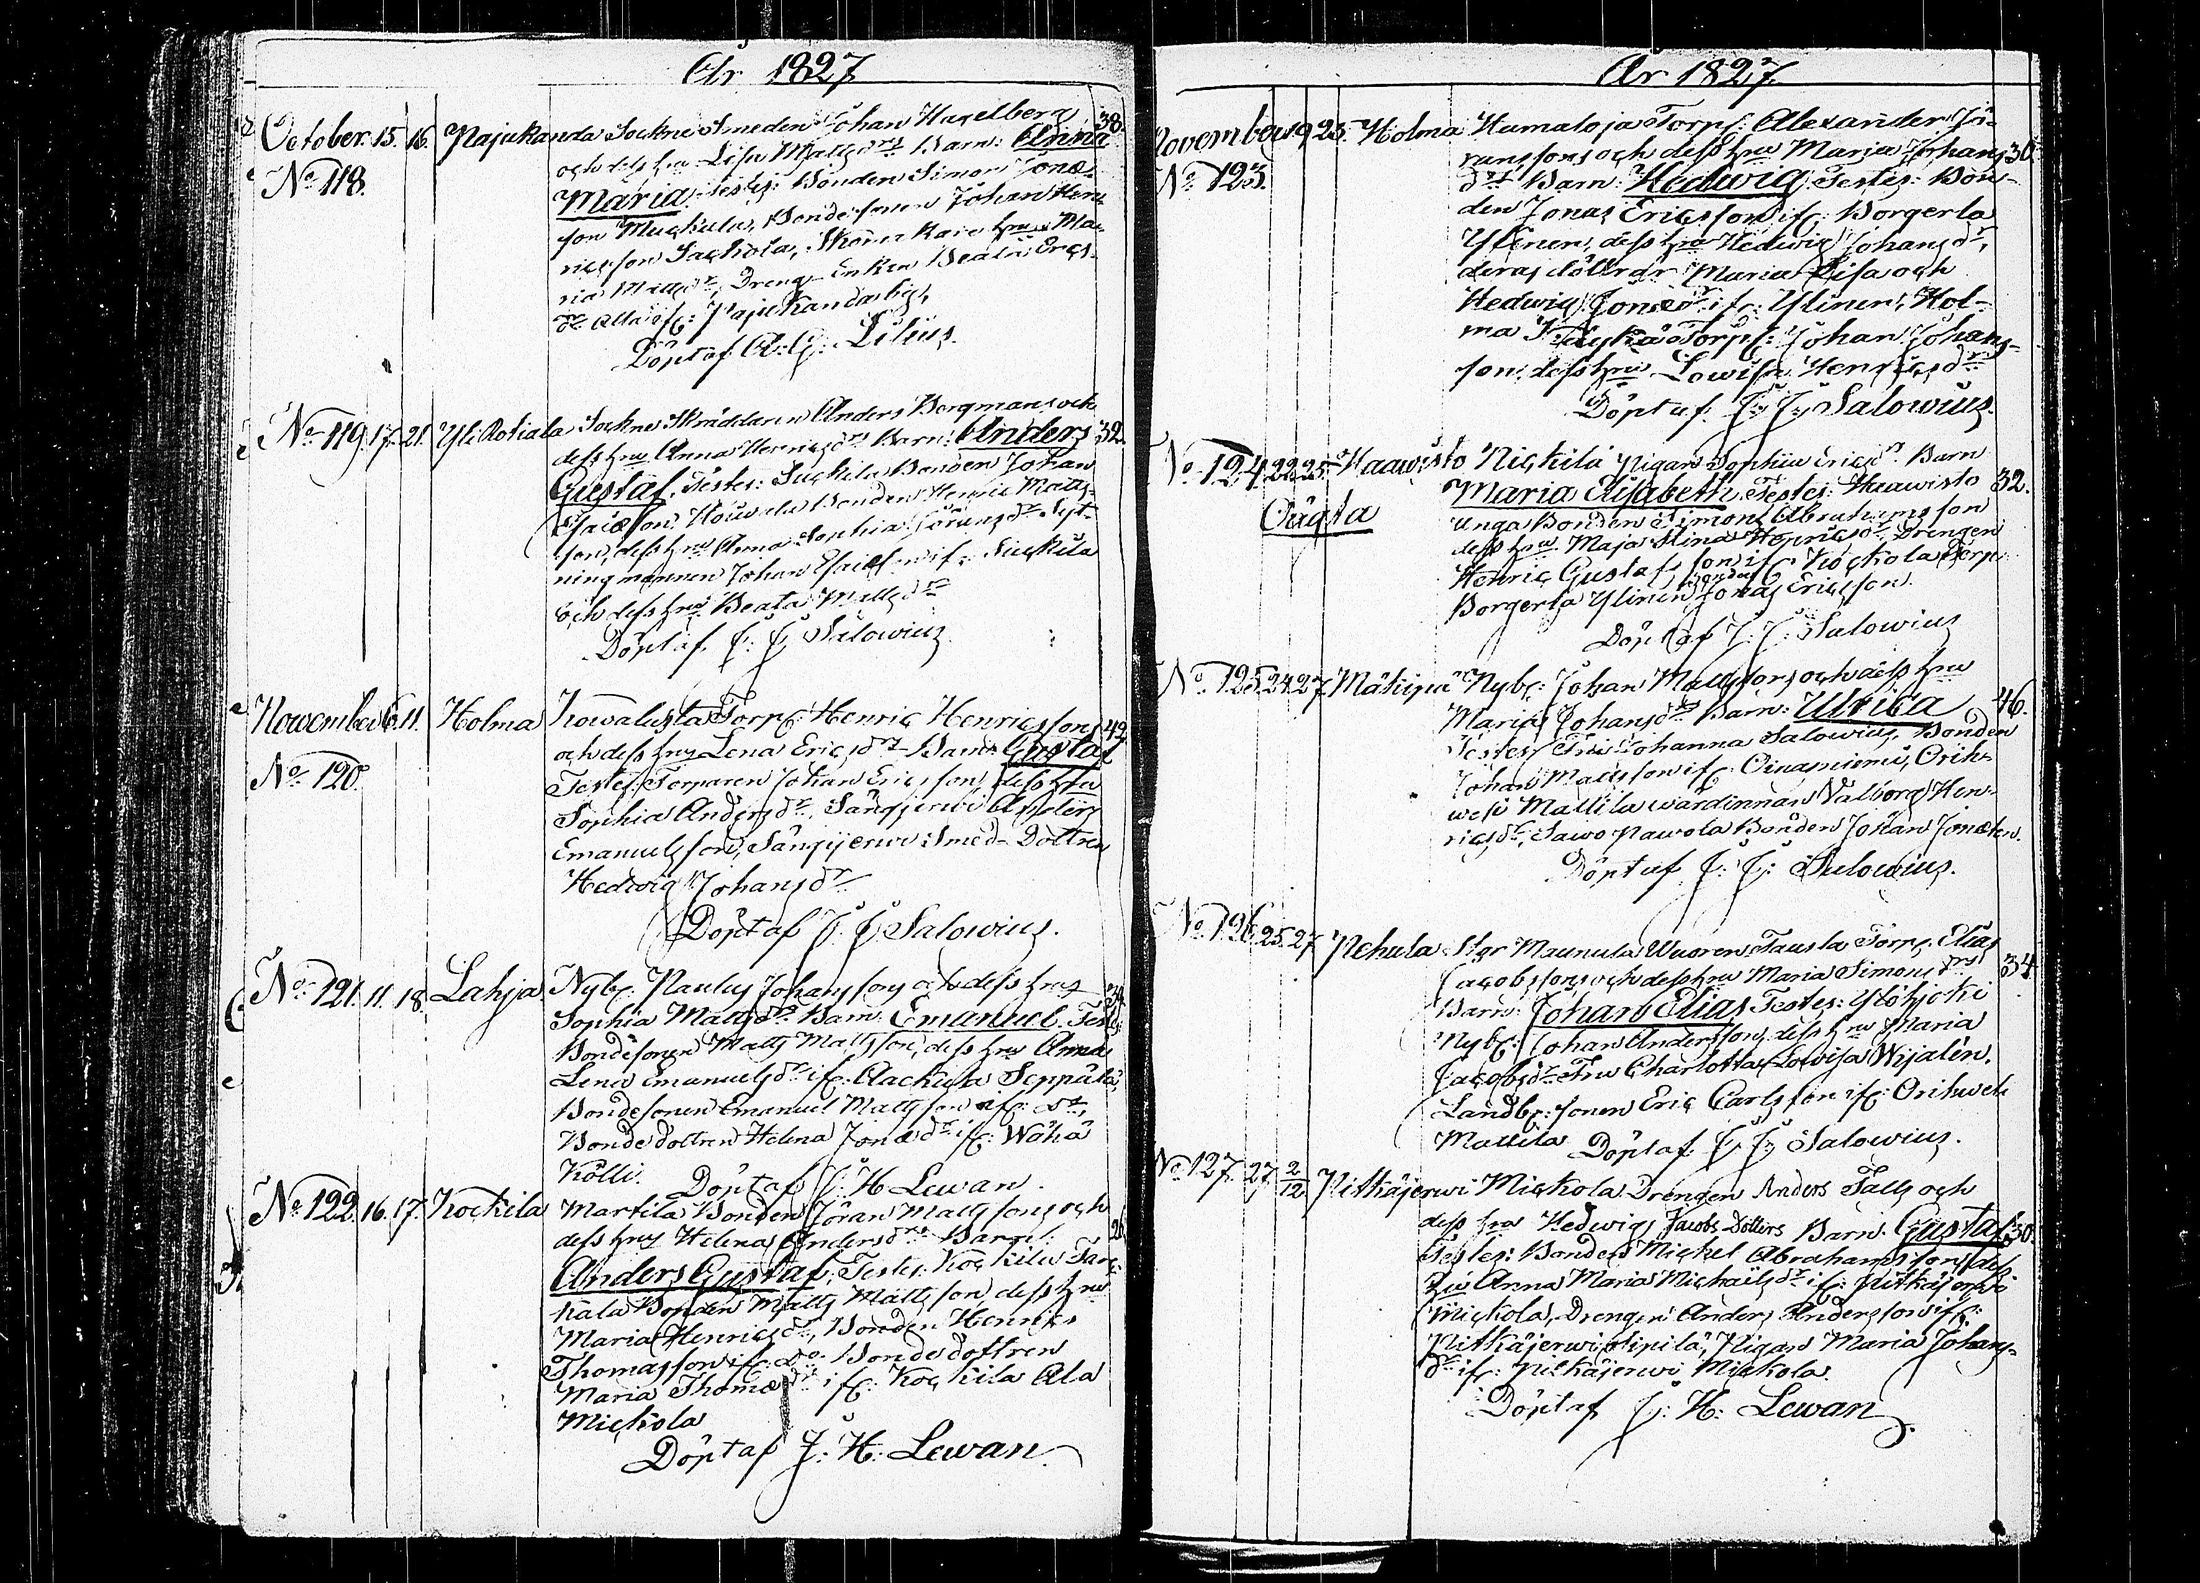 År 1827
October. 15. 16. Pajukanda Sockne Smeden Johan Haselberg 38.
och dess hru Lisa Mattsdrs Barn: Anna
No 118.
Maria. Testes: Bonden Simon Jonæ-
son Muckula, Bondesonen Johan Hen-
ricsson Sackola, hru Ma-
ria Mattsdr, Dreng Enkan Beata Erics-
dr alla if: Pajukandaby,
Döpt af A: G: Lilius.
No 119. 17. 21. Yli Rotiala Sockne Skräddaren Anders Bergmans och
dess hru Anna Henricsdrs Barn: Anders 32.
Gustaf. Testes: Bonden Johan
Esaiæson, Bonden Henric Matts-
son, dess hru Anna Sophia Göransdr Syt-
ningmannen Johan Esaiæson if:
och dess hru Beata Mattsdr
Döpt af J: J: Salowius.
November 6. 11. Holma Torp: Henric Henricssons 42.
och dess hrus Lena Ericsdrs Barn: Gustaf
No 120.
Testes: Torparen Johan Ericsson, dess hru
Sophia Andersdr, Sängjerwi Anders
Emanuelsson, Sängjerwi Smed-Dottren
Hedwig Johansdr
Döpt af J: J: Salowius.
No 121. 11. 18. Lahja. Nybr. Paulus Johanssons och dess hrus
Sophia Mattsdrs Barn: Emanuel. Test:
Bondesonen Matts Mattsson, dess hru Anna
Lena Emanuelsdr if: Aackula Seppälä,
Bondesonen Emanuel Mattsson if: do,
Bonde dottren Helena Jonædr if: Wähä
Kölli. Döpt af J: H Lewan.
No 122. 16. 17. Kockila Martila Bonden Jöran Mattssons och
dess hrus Helena Andersdrs Barn:
Anders Gustaf. Testes: Kockila Tan-
kala Bonden Matts Mattsson, dess hru
Maria Henricsdr, Bonden Henric
Thomasson if: do: Bonde dottren
Maria Thomædr if: Kockila Ala
Mickola
Döpt af J: H: Lewan.
År 1827.
November 19. 25. Holma Humaloja Torp: Alexander Jö-
ranssons och dess hru Maria Johans 36.
No 123.
drs Barn: Hedwig. Testes: Bon-
den Jonas Ericsson if: Borgerla
Ylinen, dess hru Hedwig Johansdr,
deras döttrar Maria Lisa och
Hedwig Jonædr if: Ylinen, Hol-
ma Torp: Johan Johans-
son, dess hru Lowisa Henricsdr
Döpt af J: J: Salowius.
No 124. 22. 25. Haawisto Nickilä Pigan Sophia Ericsdrs Barn
Maria Elisabeth. Testes: Haawisto 32.
Oägta
unga Bonden Simon Abrahamsson
dess hru Maja Stina Henricsdr, Drengen
Henric Gustafsson if: Kockola Torp
Borgerla Ylinen Bonden Jonas Ericsson.
Döpt af J: J: Salowius
No 125. 24. 27. Mäkipä Nybr: Johan Mattssons och dess hru
Maria Johansdrs Barn: Ulrica 46.
Testes: Fru Johanna Salowius, Bonden
Johan Mattsson if: Oinasniemi, Orih-
wesi Mattila wärdinnan Walborg Hen-
ricsdr, Sawo Pawola Bonden Johan Jonæson.
Döpt af J: J: Salowius.
No 126. 25. 27. Pehula Maunula Wuoren Tausta Torp: Elias
Jacobssons och dess hru Maria Simonsdrs 34.
Barn: Johan Elias. Testes: Ylöjoki
Nybr: Johan Andersson, dess hru Maria
Jacobsdr Fru Charlotta Lowisa Wijalén.
Landbr: sonen Eric Carlsson if: Orihweh
Mattila Döpt af J: J: Salowius.
No 127. 27. 2/12. Pitkäjerwi Mickola Drengen Anders Talls och
dess hru Hedwigs Jacobs Dotters Barn. Gustaf 30.
Testes: Bonden Mickel Abrahamsson, dess
hru Anna Maria Michaelsdr if: Pitkäjerwi
Mickola, Drengen Anders Andersson if:
Pitkäjerwi Pipilä, Pigan Maria Johans-
dr if: Pitkäjerwi Mickola.
Döpt af J: H: Lewan.